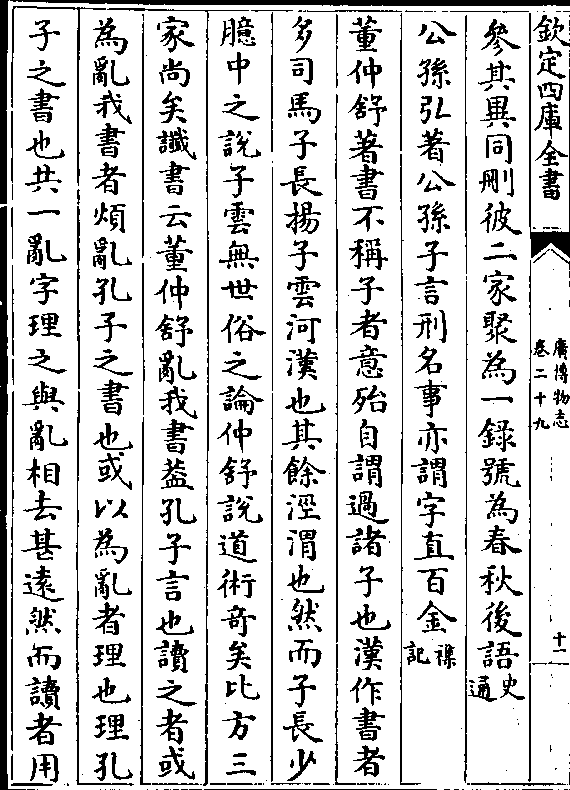 欽定四庫全書
廣博物志
卷二十九
十二
參其異同刪彼二家聚為一錄號為春秋後語史通
公孫弘著公孫子言刑名事亦謂字直百金襍記
董仲舒著書不稱子者意殆自謂過諸子也漢作書者
多司馬子長揚子雲河漢也其餘涇渭也然而子長少
臆中之說子雲無世俗之論仲舒說道術奇矣比方三
家尚矣讖書云董仲舒亂我書葢孔子言也讀之者或
為亂我書者煩亂孔子之書也或以為亂者理也理孔
子之書也共一亂字理之與亂相去甚遠然而讀者用